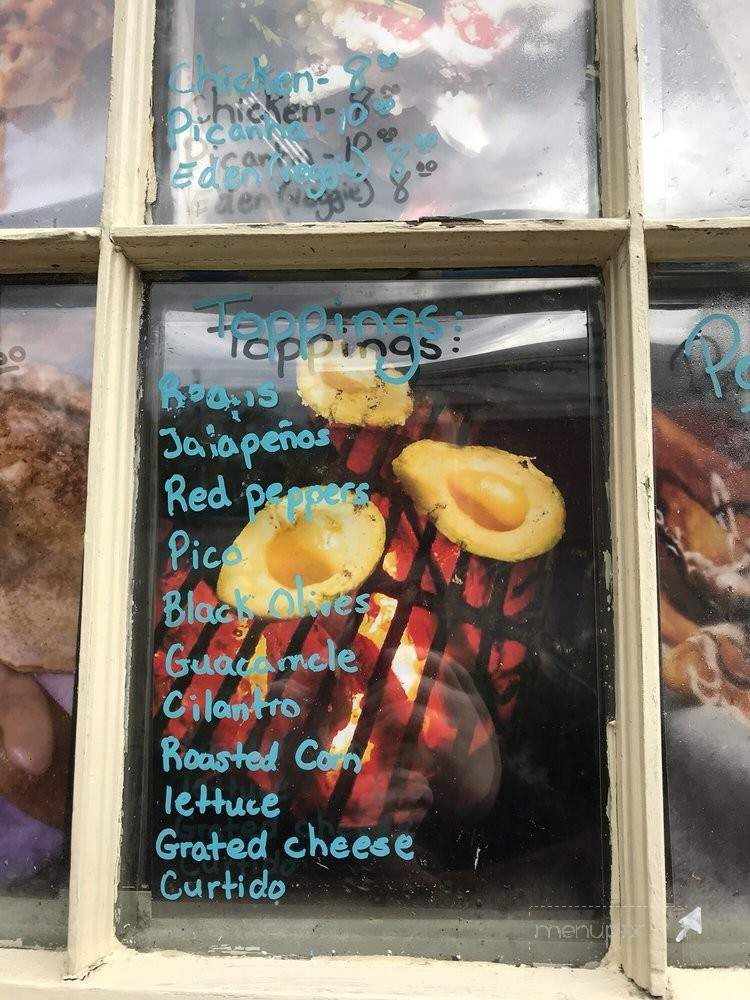 Chicken- 8⁰⁰
Picanha - 10⁰⁰
Eden (veggie) 8⁰⁰
Toppings:
Jalapeños
Red peppers
Pico
Black Olives
Guacamole
Cilantro
Roasted Corn
lettuce
Grated cheese
Curtido